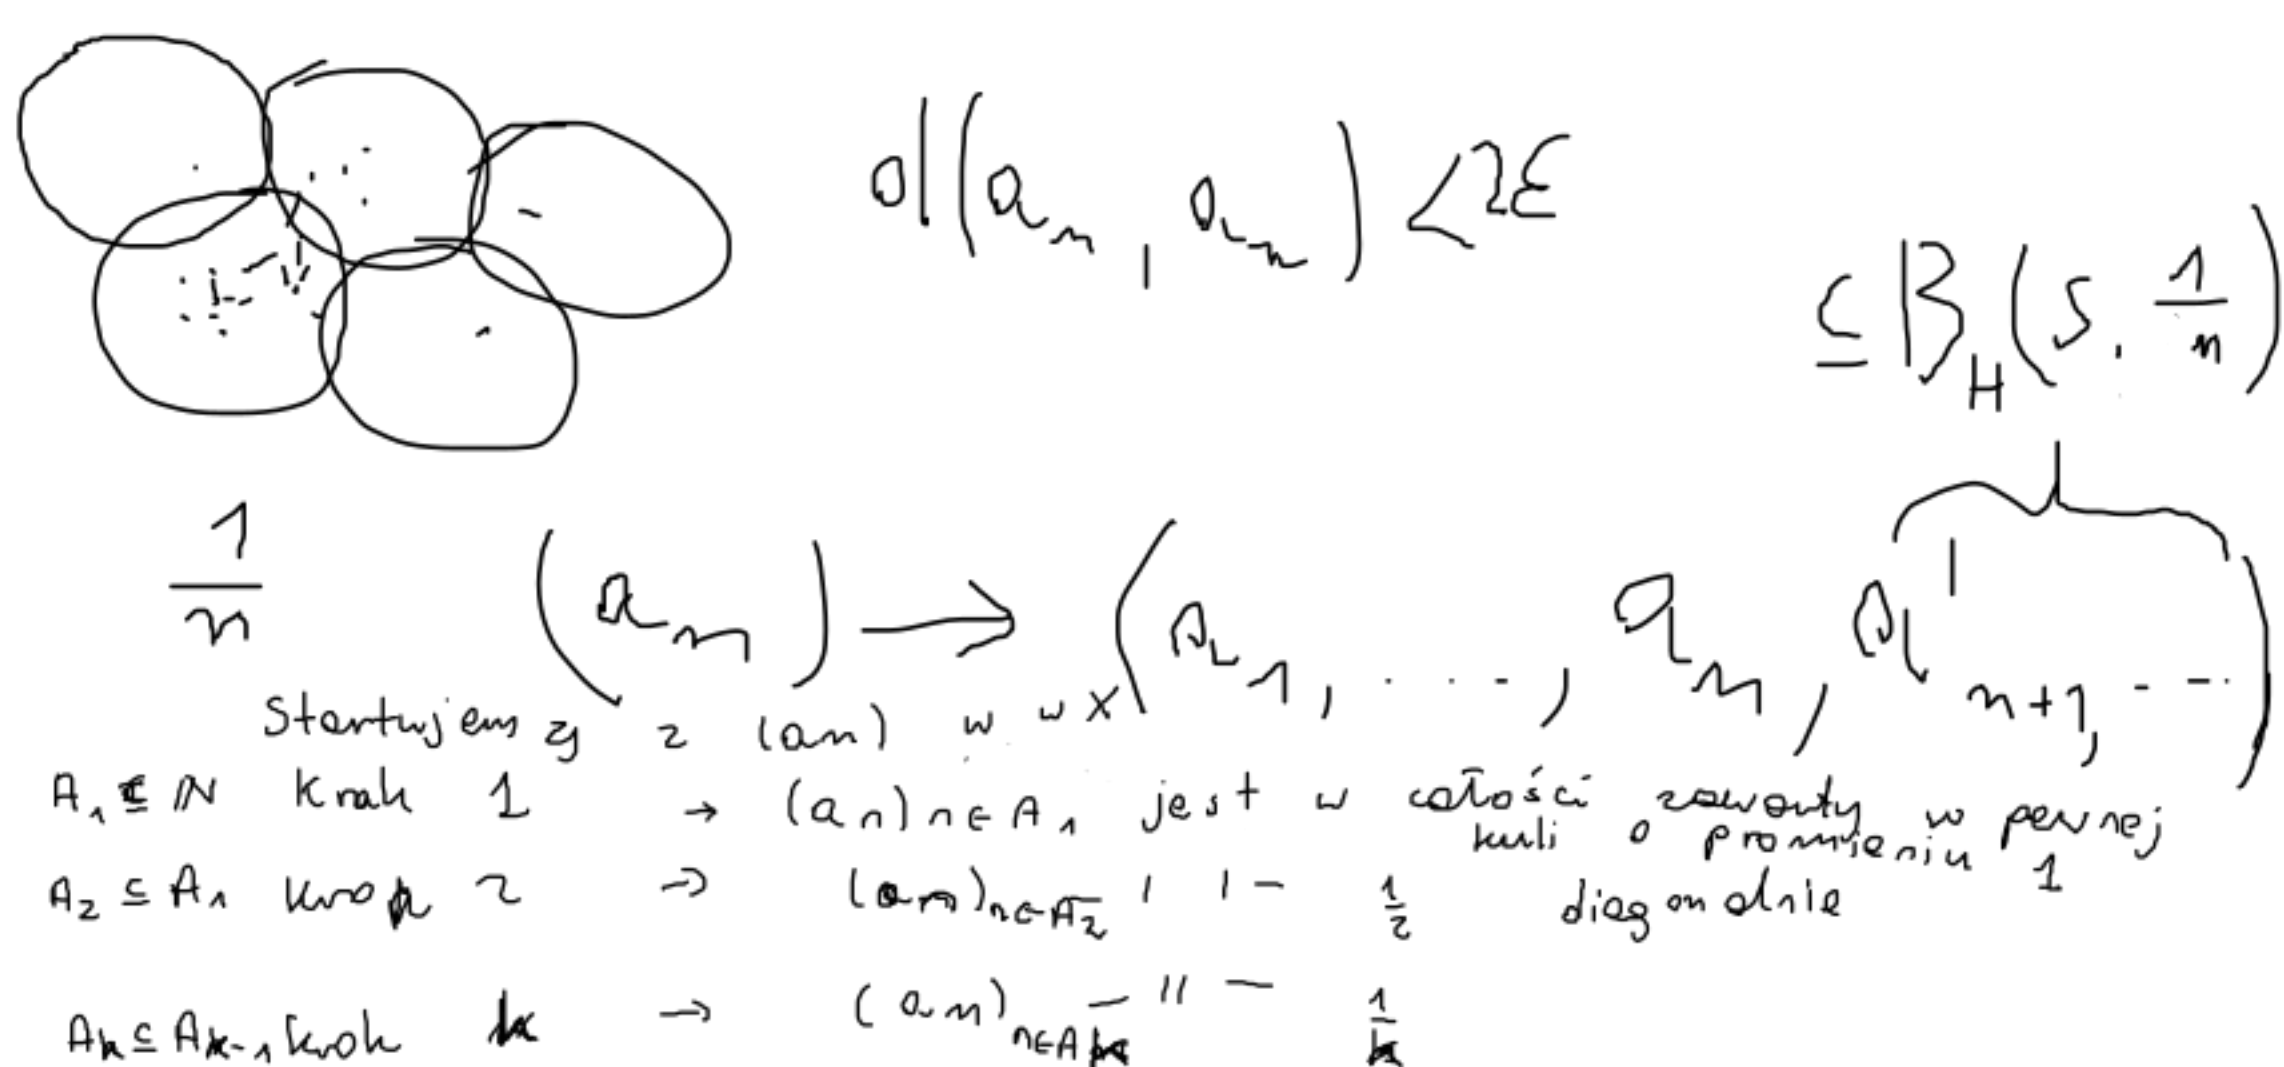 d(a_m, a_n) < 2ε
⊆ B_H(s, 1/n)
1/n (a_n) → (a_1, ..., a_n, a'_{n+1}, ...)
Startujemy z (an) w w X
A_1 ⊆ ℕ krok 1 → (a_n)_{n∈A_1} jest w całości zawarty w pewnej
kuli o promieniu 1
A_2 ⊆ A_1 krok 2 → (a_n)_{n∈A_2} ' ' - 1/2 diagonalnie
A_k ⊆ A_{k-1} krok k → (a_n)_{n∈A_k} - '' - 1/k